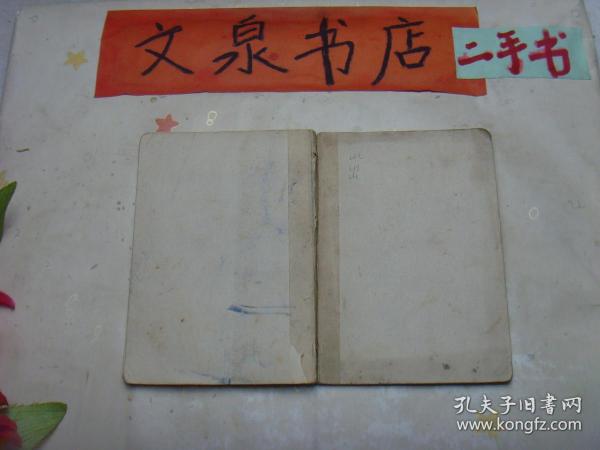 文泉书店
二手书
孔夫子旧書网
www.kongfz.com